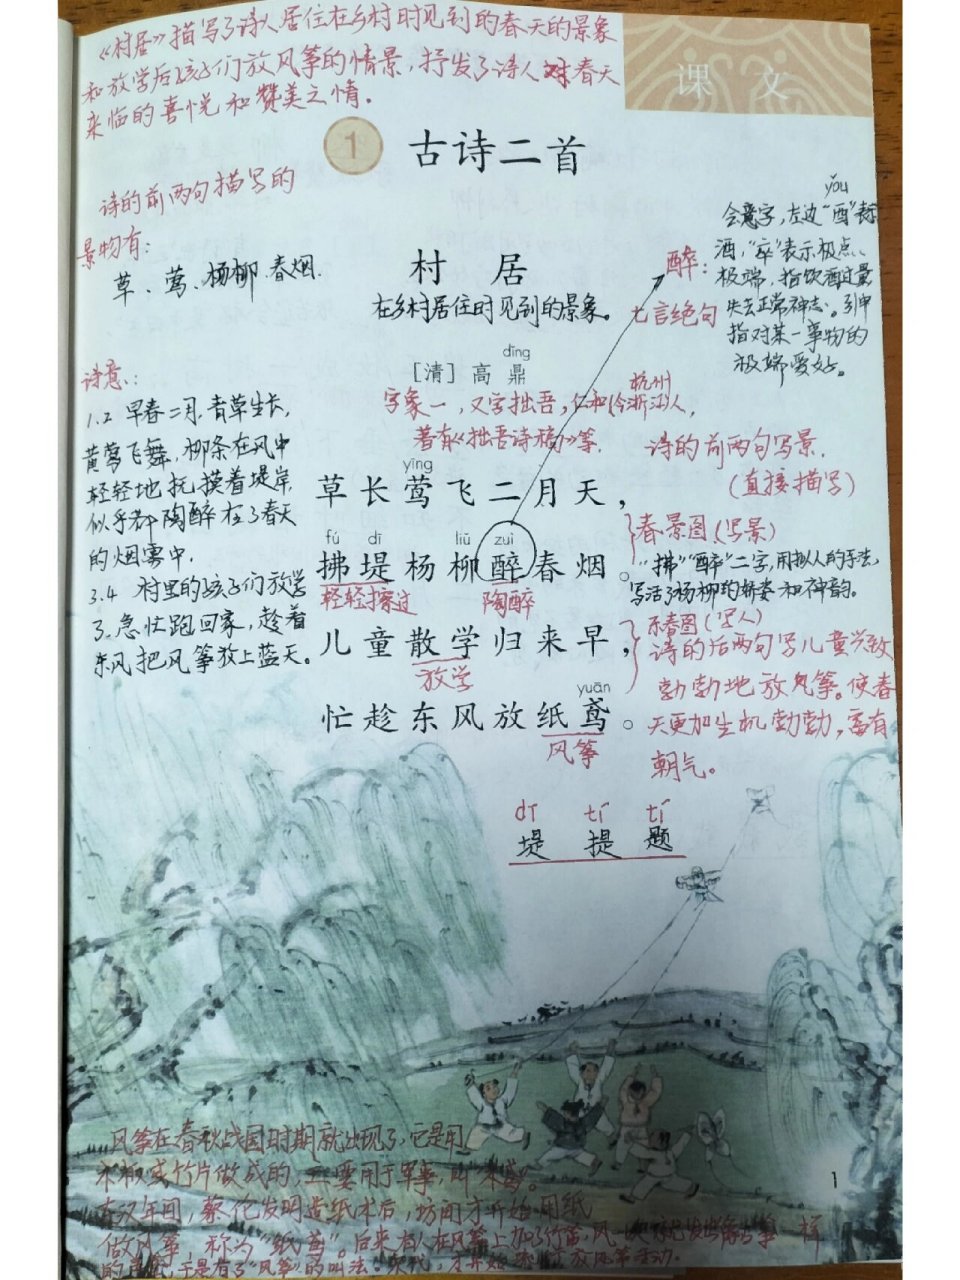 《村居》描写了诗人居住在乡村时见到的春天的景象
和放学后孩子们放风筝的情景，抒发了诗人对春天
来临的喜悦和赞美之情。
课 文
1 古诗二首
诗的前两句描写的
景物有：
草、莺、杨柳、春烟.
村 居
在乡村居住时见到的景象。
醉：
七言绝句
yǒu
会意字，左边“酉”表示
酒，“卒”表示极点、
极端，指饮酒过量
失去正常神志。引申
指对某一事物的
极端爱好。
dǐng
［清］高 鼎
杭州
字象一，又字拙吾，仁和(今浙江)人，
著有《拙吾诗稿》等.
诗意：
1.2 早春二月，青草生长，
黄莺飞舞，柳条在风中
轻轻地抚摸着堤岸，
似乎都陶醉在了春天
的烟雾中.
3.4 村里的孩子们放学
了.急忙跑回家，趁着
东风把风筝放上蓝天。
yīng
草长莺飞二月天，
fú dī liǔ zuì
拂堤杨柳醉春烟。
轻轻擦过 陶醉
儿童散学归来早，
放学
yuān
忙趁东风放纸鸢。
风筝
诗的前两句写景.
(直接描写)
春景图.(写景)
“拂”“醉”二字，用拟人的手法，
写活了杨柳的娇姿和神韵。
乐春图(写人)
诗的后两句写儿童兴致
勃勃地放风筝。使春
天更加生机勃勃，富有
朝气。
dī tí tí
堤 提 题
风筝在春秋战国时期就出现了，它是用
木板或竹片做成的，主要用于军事，叫“木鸢”。
在汉年间，蔡伦发明造纸术后，坊间才开始用纸
做风筝，称为“纸鸢”。后来有人在风筝上加了竹笛，风一吹就发出像古筝一样
的声音，于是有了“风筝”的叫法。
1